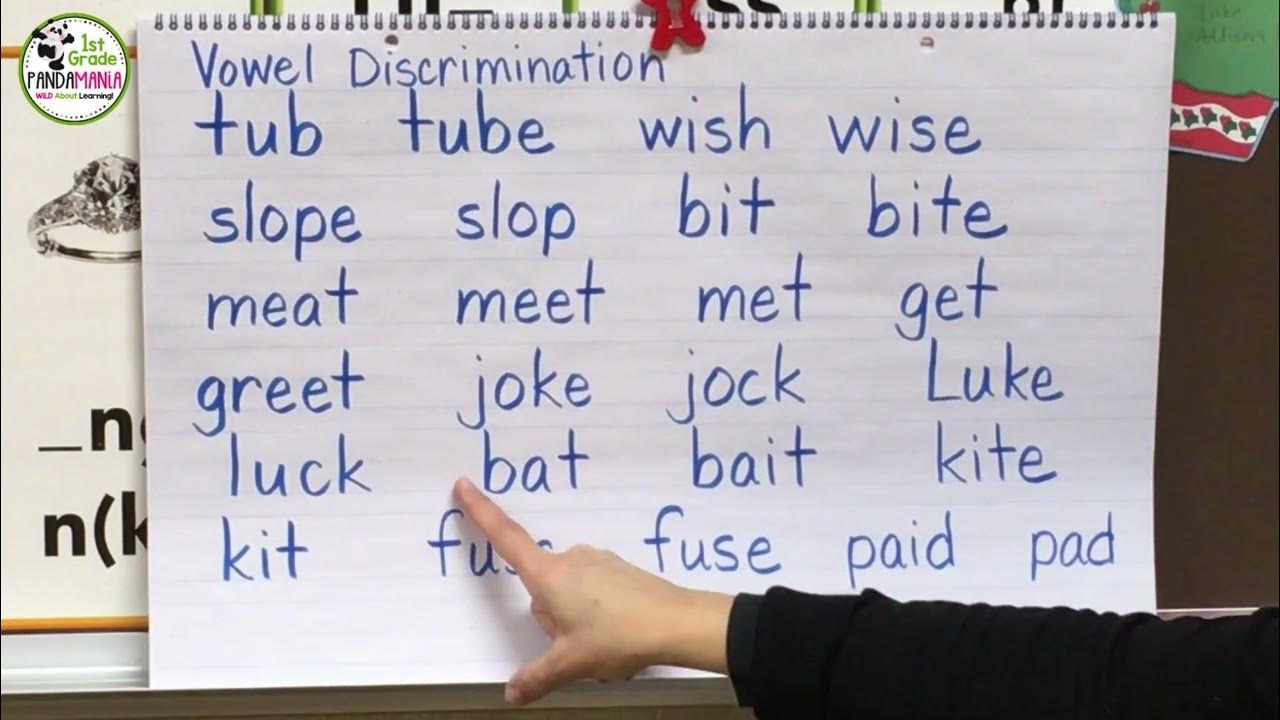 1st
Grade
PANDAMANIA
WiLD About Learning!
Luke
Addison
Vowel Discrimination
tub tube wish wise
slope slop bit bite
meat meet met get
greet joke jock Luke
luck bat bait kite
kit fuse paid pad
_n
n(k